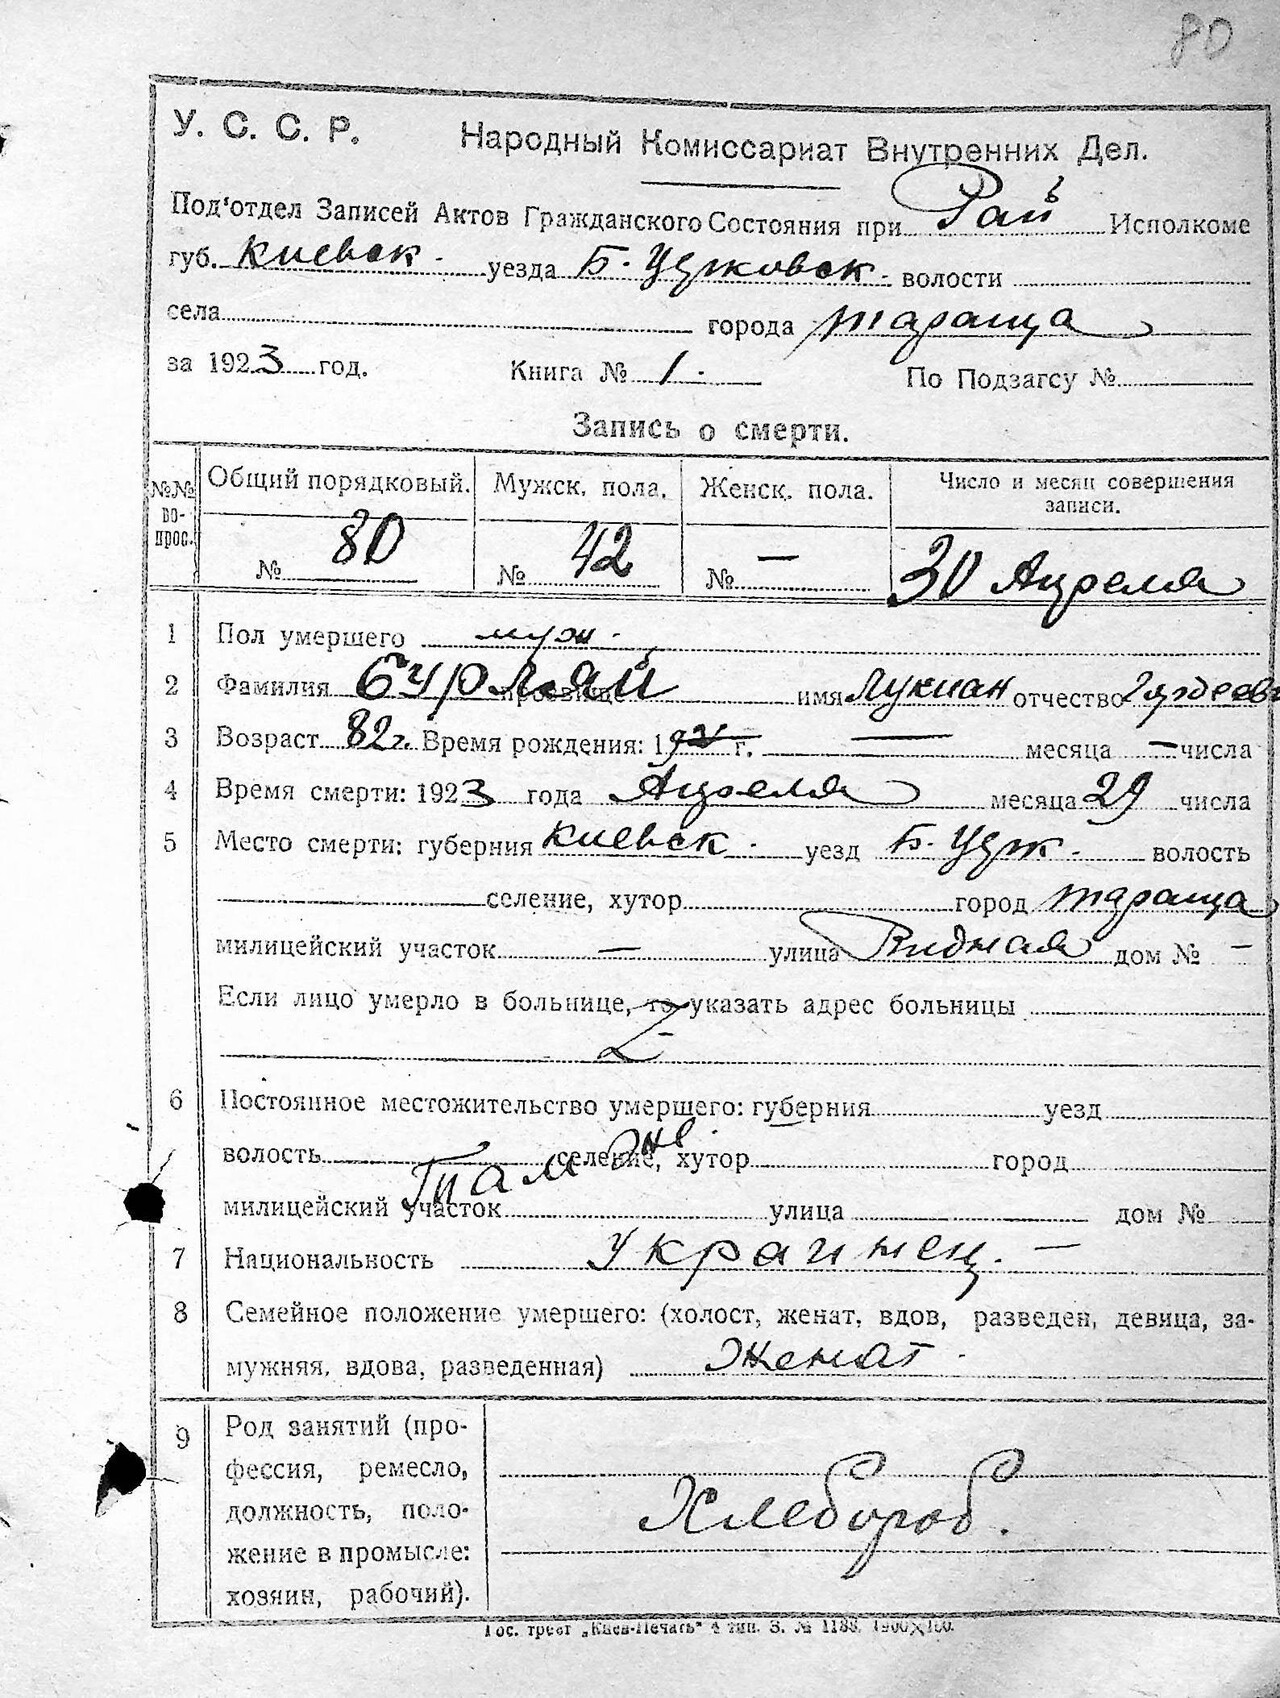 80
У. С. С. Р. Народный Комиссариат Внутренних Дел.
Под'отдел Записей Актов Гражданского Состояния при Рай Исполкоме
губ. Киевск. уезда Б. Церковск. волости
села города Тараща
за 1923 год. Книга № 1. По Подзагсу №
Запись о смерти.
№№ во- прос. Общий порядковый. Мужск. пола. Женск. пола. Число и месяц совершения записи.
№ 80 № 42 № — 30 Апреля
1 Пол умершего муж.
2 Фамилия Бурлай прозвище имя Лукиан отчество
3 Возраст 82 г. Время рождения: 19 г. — месяца — числа
4 Время смерти: 1923 года Апреля месяца 29 числа
5 Место смерти: губерния Киевск. уезд Б. Церк. волость
селение, хутор город Тараща
милицейский участок — улица Видная дом № —
Если лицо умерло в больнице, то указать адрес больницы
6 Постоянное местожительство умершего: губерния уезд
волость селение, хутор город
Там же.
милицейский участок улица дом №
7 Национальность Украинец. —
8 Семейное положение умершего: (холост, женат, вдов, разведен, девица, за-
мужняя, вдова, разведенная) Женат.
9 Род занятий (про-
фессия, ремесло,
должность, поло-
жение в промысле:
хозяин, рабочий).
Хлебороб.
Гос. трест „Киев-Печать" 4 тип. З. № 1188. 1900×100.